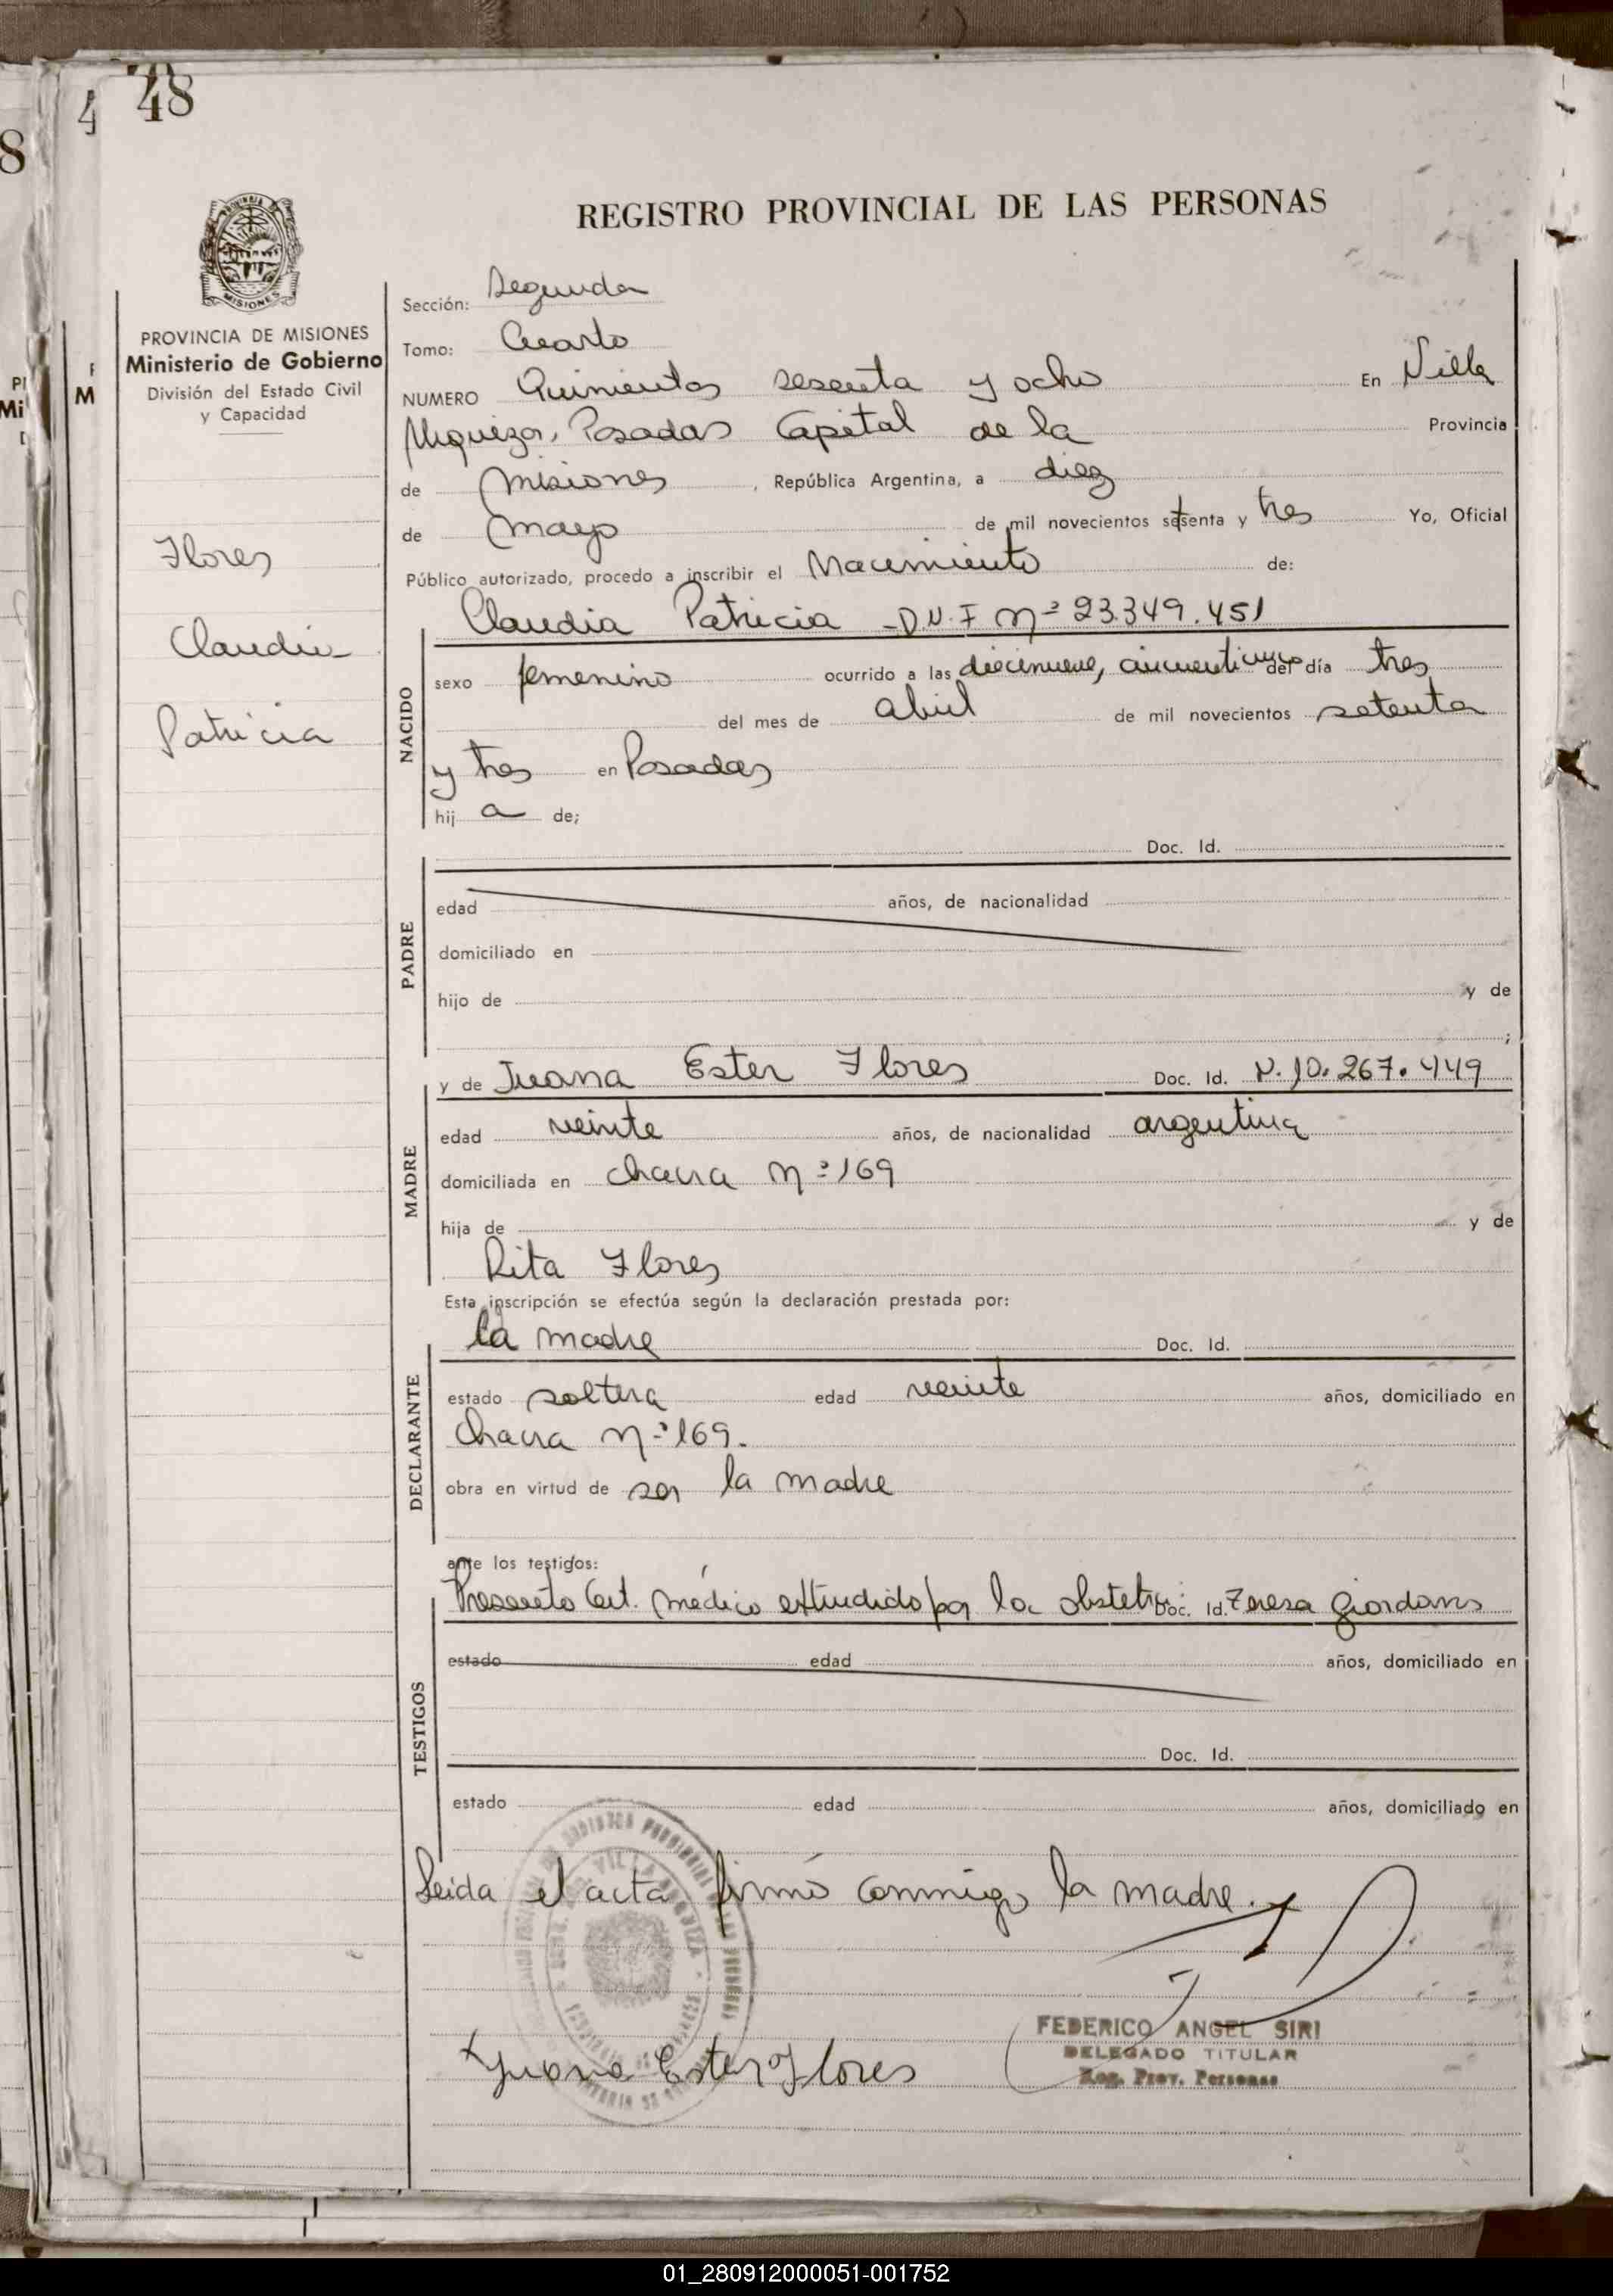 48
4
8
REGISTRO PROVINCIAL DE LAS PERSONAS
MISIONES
PROVINCIA DE MISIONES
Ministerio de Gobierno
División del Estado Civil
y Capacidad
Flores
Claudia
Patricia
Sección: Segunda
Tomo: Cuarto
NUMERO Quinientos sesenta y ocho En Villa
Urquiza, Posadas Capital de la Provincia
de Misiones, República Argentina, a diez
de mayo de mil novecientos setenta y tres Yo, Oficial
Público autorizado, procedo a inscribir el Nacimiento de:
Claudia Patricia - D.N.I nº 23.349.451
NACIDO
sexo femenino ocurrido a las diecinueve, cincuenticinco del día tres
del mes de abril de mil novecientos setenta
y tres en Posadas
hij a de;
Doc. Id.
PADRE
edad años, de nacionalidad
domiciliado en
hijo de y de
;
y de Juana Ester Flores Doc. Id. N. 10.267.449
MADRE
edad veinte años, de nacionalidad argentina
domiciliada en chacra nº 169
hija de y de
Rita Flores
Esta inscripción se efectúa según la declaración prestada por:
la madre Doc. Id.
DECLARANTE
estado soltera edad veinte años, domiciliado en
Chacra nº 169.
obra en virtud de ser la madre
ante los testigos:
Presento Cert. médico extendido por la obstetri Doc. Id. Teresa Giordano
TESTIGOS
estado edad años, domiciliado en
Doc. Id.
estado edad años, domiciliado en
Leida el acta firmó conmigo la madre.
FEDERICO ANGEL SIRI
DELEGADO TITULAR
Reg. Prov. Personas
Juana Ester Flores
01_280912000051-001752